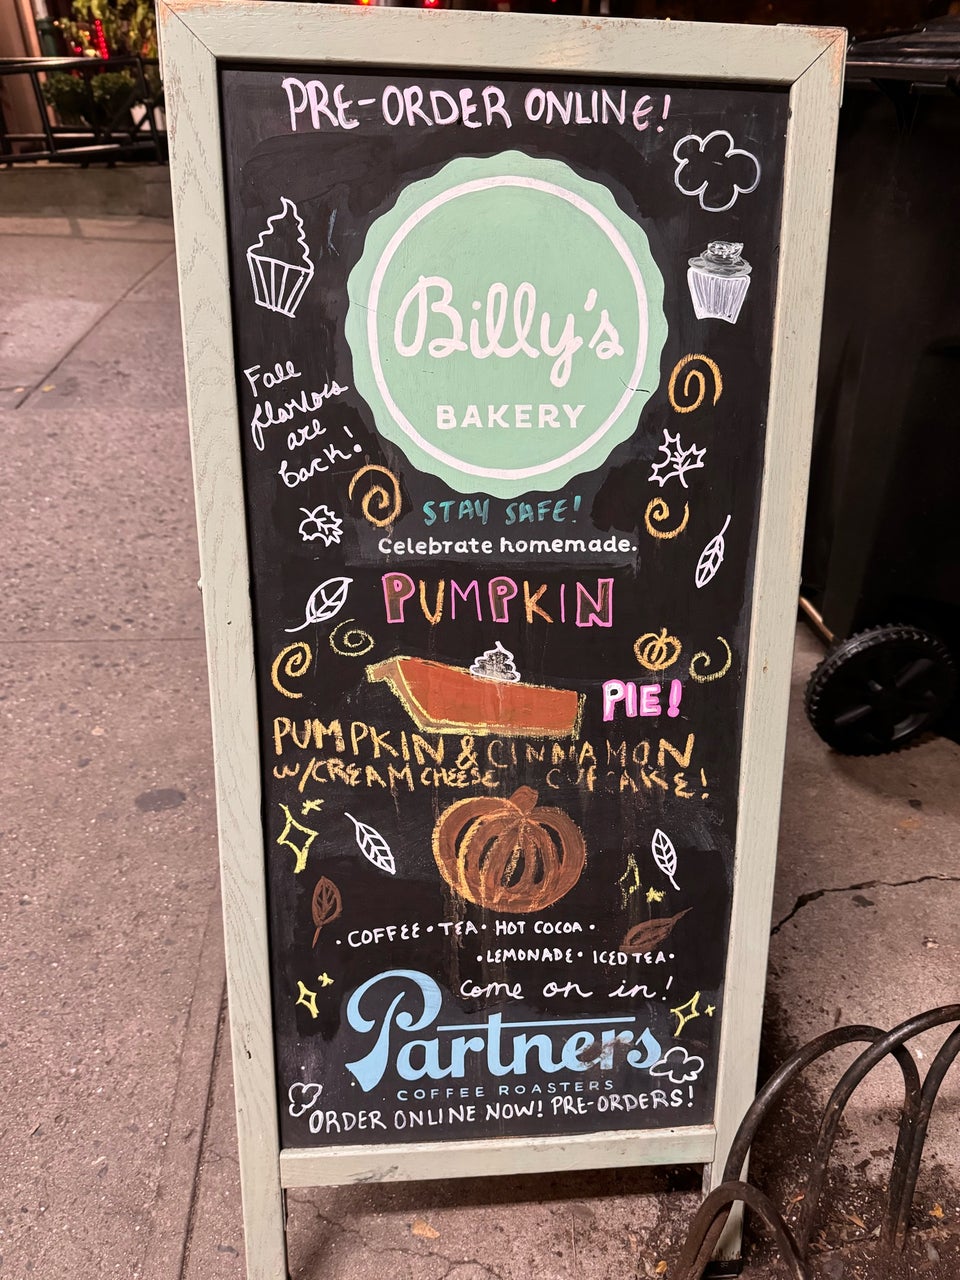 PRE-ORDER ONLINE!
Billy's
BAKERY
Fall
flavors
are
back!
STAY SAFE!
Celebrate homemade.
PUMPKIN
PIE!
PUMPKIN & CINNAMON
W/CREAM CHEESE CUPCAKE!
· COFFEE · TEA · HOT COCOA ·
· LEMONADE · ICED TEA ·
come on in!
Partners
COFFEE ROASTERS
ORDER ONLINE NOW! PRE-ORDERS!